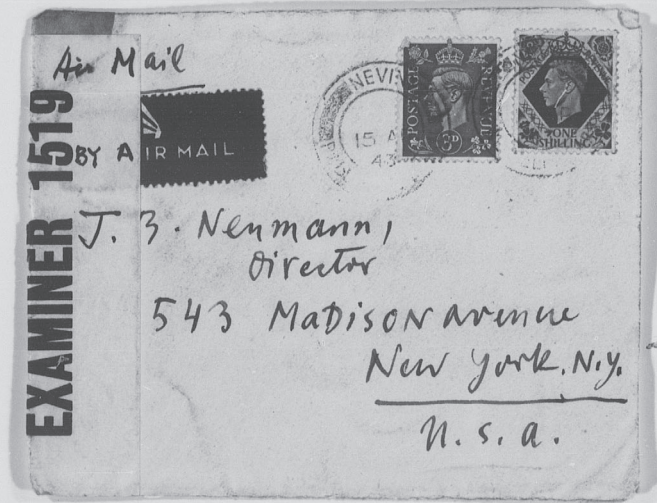 Air Mail
BY AIR MAIL
EXAMINER 1519
NEVIN
15 A
43
POSTAGE REVENUE
3D
ONE
SHILLING
J. B. Neumann,
Director
543 Madison Avenue
New York. N.Y.
U.S.A.